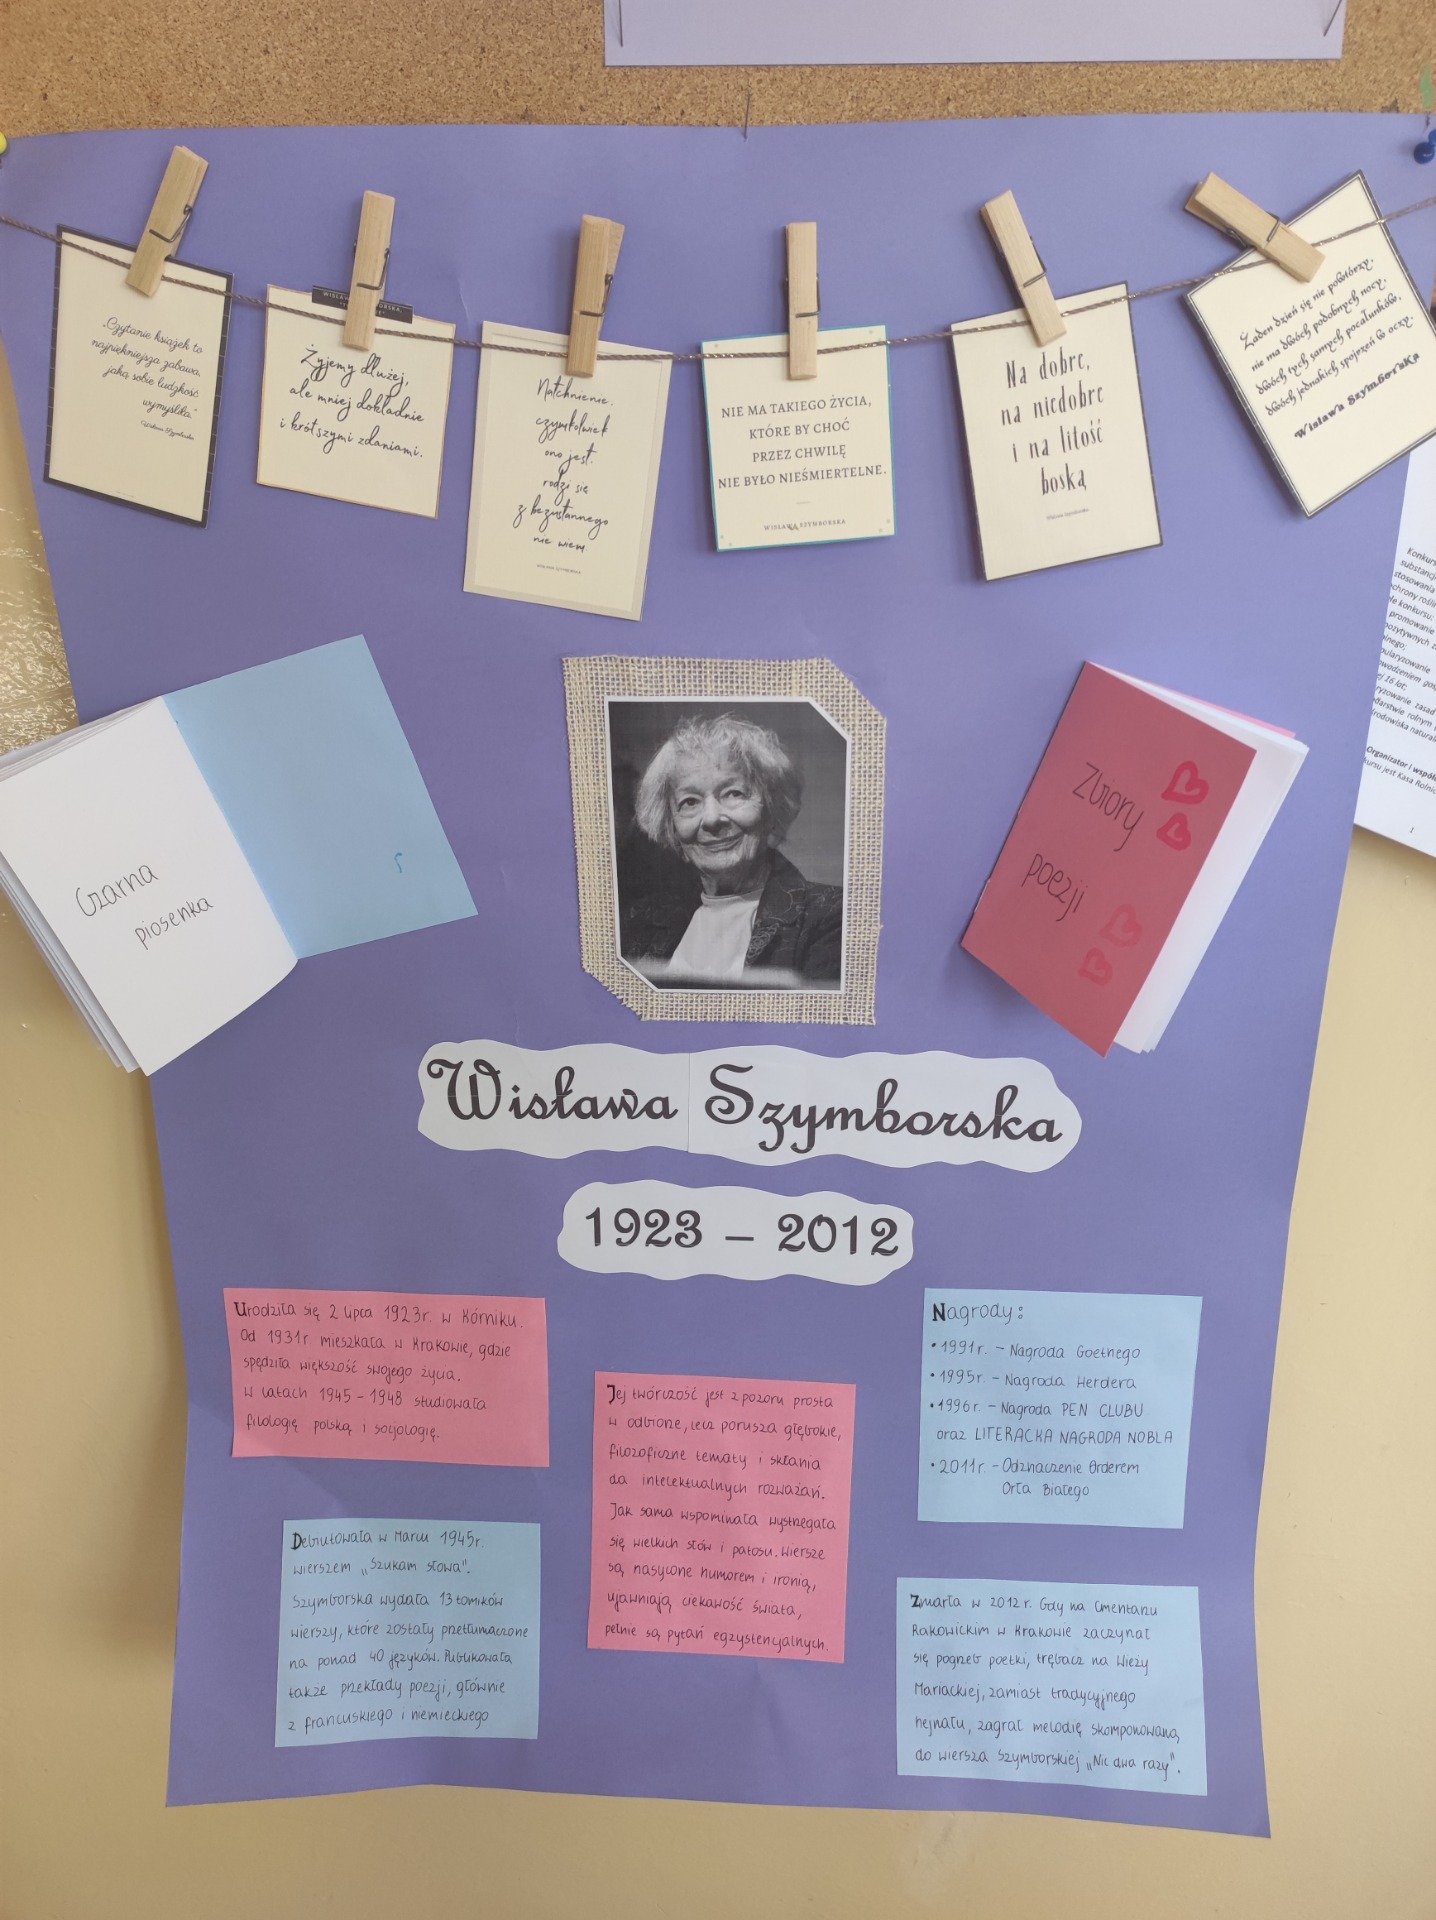 „Czytanie książek to
najpiękniejsza zabawa,
jaką sobie ludzkość
wymyśliła."
Wisława Szymborska
Żyjemy dłużej,
ale mniej dokładnie
i krótszymi zdaniami.
Natchnienie,
czymkolwiek
ono jest,
rodzi się
z bezustannego
nie wiem
WISŁAWA SZYMBORSKA
NIE MA TAKIEGO ŻYCIA,
KTÓRE BY CHOĆ
PRZEZ CHWILĘ
NIE BYŁO NIEŚMIERTELNE.
WISŁAWA SZYMBORSKA
Na dobre,
na niedobre
i na litość
boską
Wisława Szymborska
Żaden dzień się nie powtórzy,
nie ma dwóch podobnych nocy,
dwóch tych samych pocałunków,
dwóch jednakich spojrzeń w oczy.
Wisława Szymborska
Czarna
piosenka
Zbiory
poezji
Wisława Szymborska
1923 – 2012
Urodziła się 2 lipca 1923r. w Kórniku.
Od 1931r. mieszkała w Krakowie, gdzie
spędziła większość swojego życia.
W latach 1945 - 1948 studiowała
filologię polską i socjologię.
Debiutowała w Marcu 1945r.
wierszem „Szukam słowa".
Szymborska wydała 13 tomików
wierszy, które zostały przetłumaczone
na ponad 40 języków. Publikowała
także przekłady poezji, głównie
z francuskiego i niemieckiego
Jej twórczość jest z pozoru prosta
w odbione, lecz porusza głębokie,
filozoficzne tematy i skłania
da intelektualnych rozważań.
Jak sama wspominała wystrzegała
się wielkich słów i patosu. Wiersze
są nasycone humorem i ironią,
ujawniają ciekawość świata,
pełnie są pytań egzystencjalnych.
Nagrody:
• 1991r. - Nagroda Goethego
• 1995r. - Nagroda Herdera
• 1996r. - Nagroda PEN CLUBU
oraz LITERACKA NAGRODA NOBLA
• 2011r. - Odznaczenie Orderem
Orła Białego
Zmarła w 2012r. Gdy na Cmentarzu
Rakowickim w Krakowie zaczynał
się pogrzeb poetki, trębacz na Wieży
Mariackiej, zamiast tradycyjnego
hejnału, zagrał melodię skomponowaną
do wiersza Szymborskiej „Nic dwa razy".
Konkurs
substancji
stosowania
ochrony rośli
le konkursu:
promowanie
pozytywnych
16 lat;
Organizator i współ
kursu jest Kasa Rolnic
1